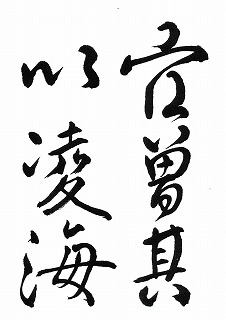 曾其
以凌海